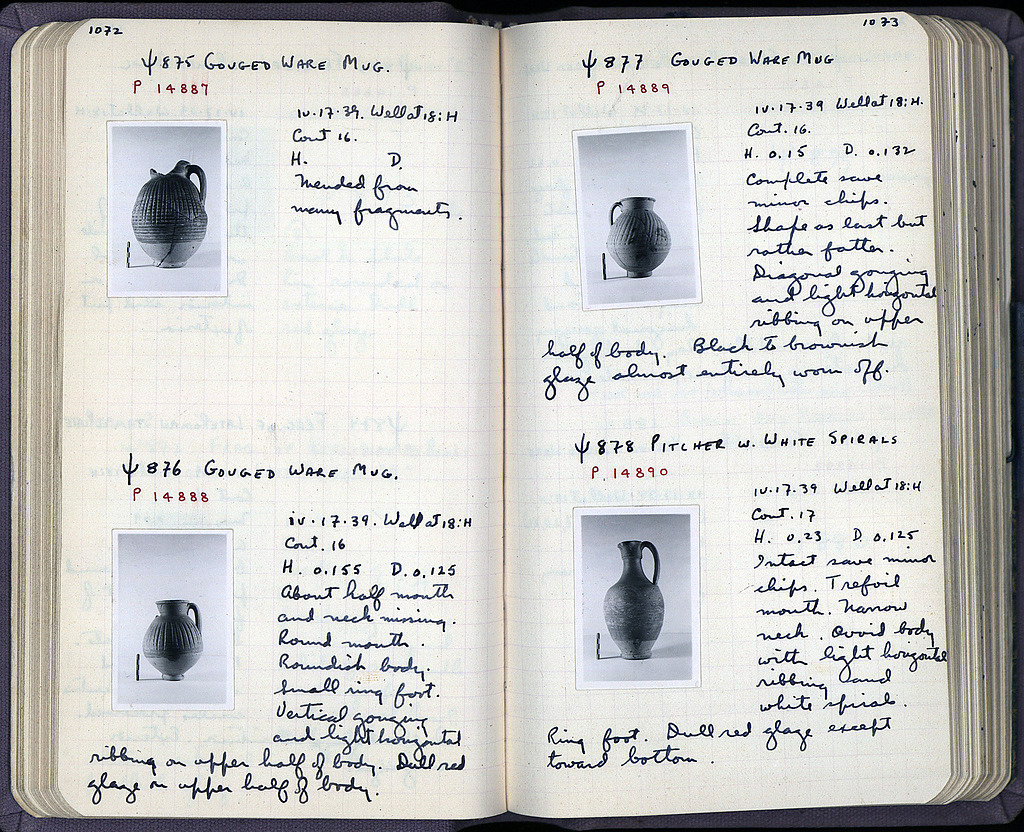 1072
Ψ 875 GOUGED WARE MUG.
P 14887
IV·17·39. Well at 18:H
Cont 16.
H. D.
Mended from
many fragments.
Ψ 876 GOUGED WARE MUG.
P 14888
IV·17·39. Well at 18:H
Cont. 16
H. 0.155 D. 0.125
About half mouth
and neck missing.
Round mouth.
Roundish body.
Small ring foot.
Vertical gouging
and light horizontal
ribbing on upper half of body. Dull red
glaze on upper half of body.
1073
Ψ 877 GOUGED WARE MUG
P 14889
IV·17·39 Well at 18:H.
Cont. 16.
H. 0.15 D. 0.132
Complete save
minor chips.
Shape as last but
rather fatter.
Diagonal gouging
and light horizontal
ribbing on upper
half of body. Black to brownish
glaze almost entirely worn off.
Ψ 878 PITCHER W. WHITE SPIRALS
P. 14890
IV·17·39 Well at 18:H
Cont. 17
H. 0.23 D. 0.125
Intact save minor
chips. Trefoil
mouth. Narrow
neck. Ovoid body
with light horizontal
ribbing and
white spirals.
Ring foot. Dull red glaze except
toward bottom.